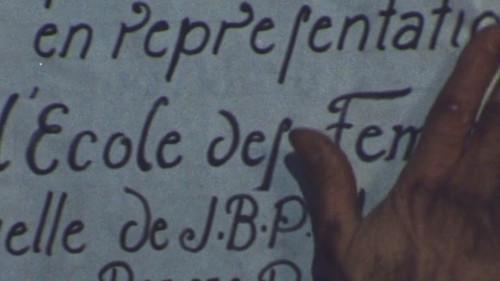 en repreſentatio
l'Ecole deſ Fem
elle de J.B.P.